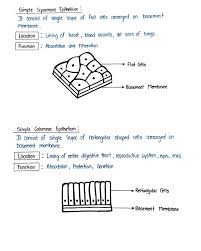 Simple Squamous Epithelium :
It consist of single layer of flat cells arranged on basement
membrane.
Location : Lining of heart, blood vessels, air sacs of lungs
Function : Absorption and Filtration
Flat Cells
Basement Membrane
Simple Columnar Epithelium :
It consist of single layer of rectangular shaped cells arranged on
basement membrane
Location : Lining of entire digestive tract, reproductive system, eyes, ears
Function : Absorption, Protection, Secretion
Rectangular Cells
Basement Membrane